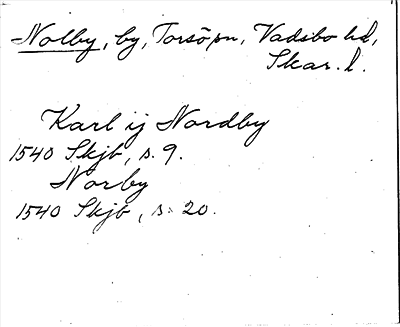 Nolby, by, Torsö sn, Vadsbo hd,
Skar. l.
Karl ij Nordby
1540 Skjb, s. 9.
Norby
1540 Skjb, s. 20.